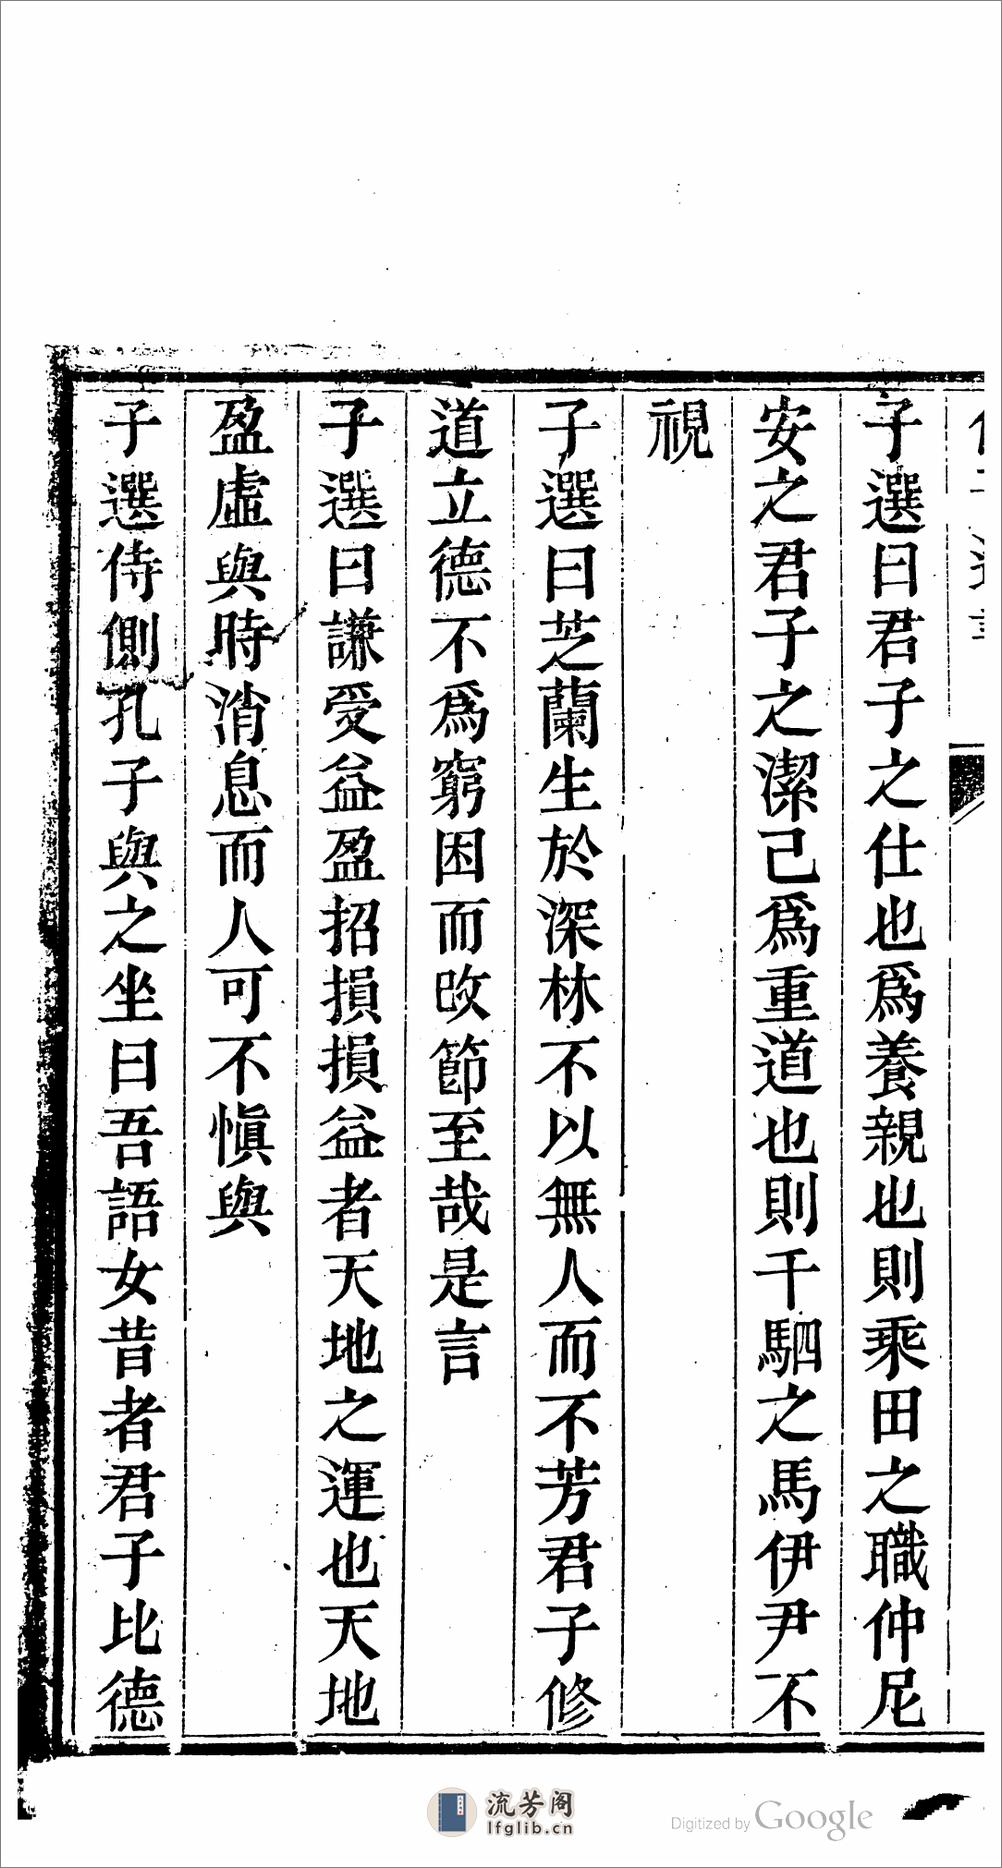 子選曰君子之仕也爲養親也則乘田之職仲尼
安之君子之潔己爲重道也則千駟之馬伊尹不
視
子選曰芝蘭生於深林不以無人而不芳君子修
道立德不爲窮困而改節至哉是言
子選曰謙受益盈招損損益者天地之運也天地
盈虛與時消息而人可不愼與
子選侍側孔子與之坐曰吾語女昔者君子比德
流芳阁
lfglib.cn
Digitized by Google